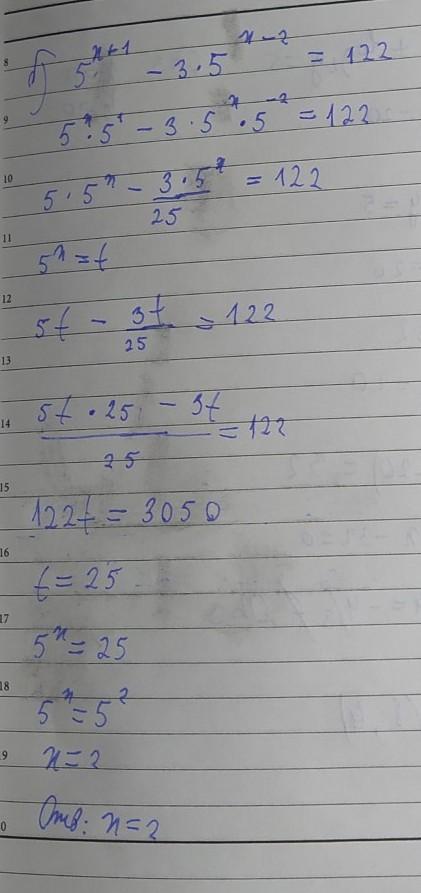 8
б) 5^{x+1} - 3·5^{x-2} = 122
9
5^x·5^1 - 3·5^x·5^{-2} = 122
10
5·5^x - \frac{3·5^x}{25} = 122
11
5^x = t
12
5t - \frac{3t}{25} = 122
13
14
\frac{5t·25 - 3t}{25} = 122
15
122t = 3050
16
t = 25
17
5^x = 25
18
5^x = 5^2
9
x = 2
0
Отв: x = 2